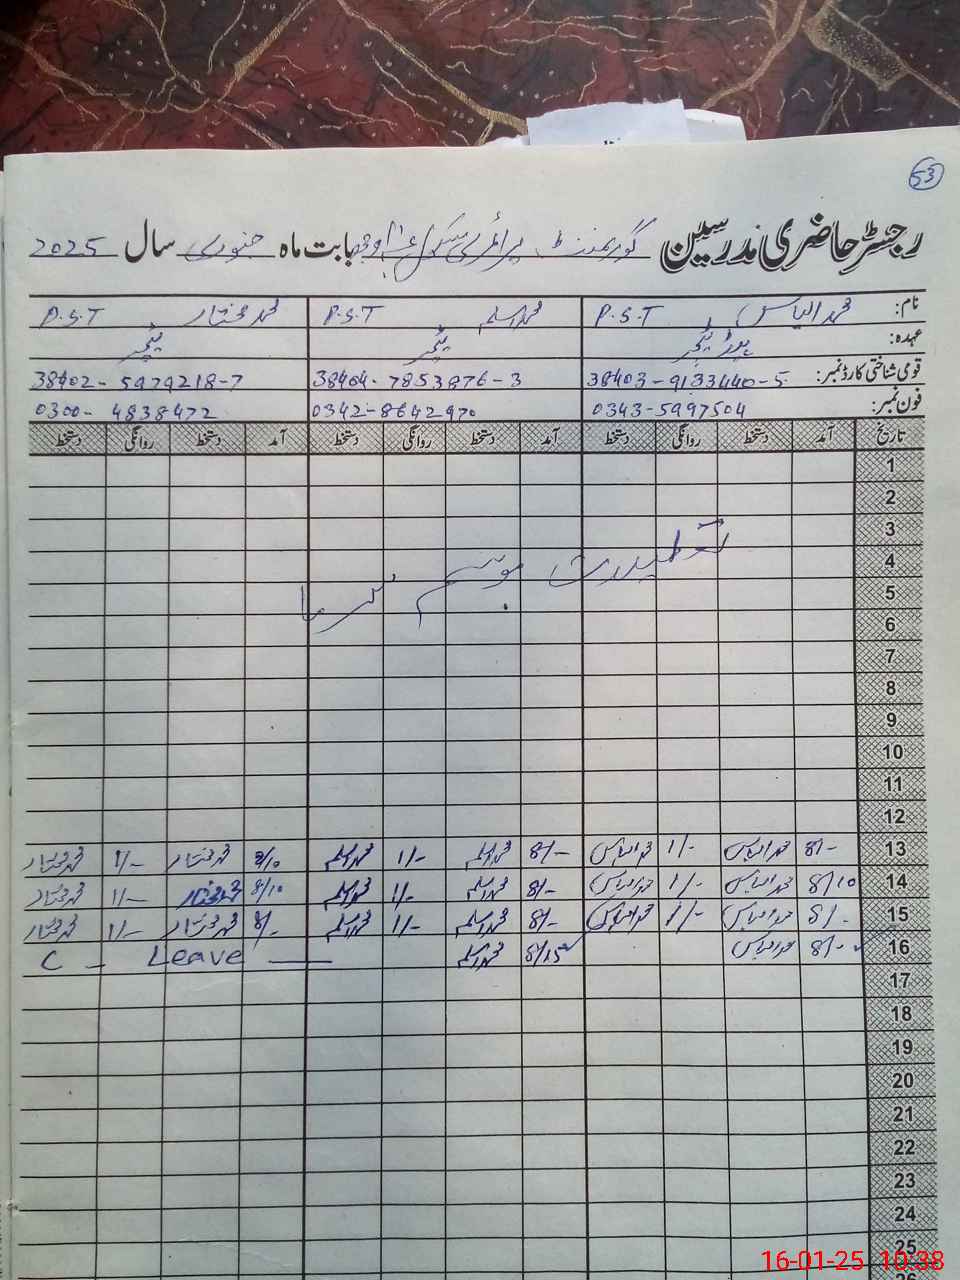 53
رجسٹر حاضری مدرسین گورنمنٹ پرائمری سکول بابت ماہ جنوری سال 2025
نام: محمد الیاس P.S.T محمد اسلم P.S.T محمد مختار P.S.T
عہدہ: ہیڈ ٹیچر ٹیچر ٹیچر
قومی شناختی کارڈ نمبر: 38403-9133440-5 38404-7853876-3 38402-5979218-7
فون نمبر: 0343-5997504 0342-8642970 0300-4838472
تاریخ آمد دستخط روانگی دستخط آمد دستخط روانگی دستخط آمد دستخط روانگی دستخط
1
2
3
تعطیلات موسم سرما
4
5
6
7
8
9
10
11
12
13 8/- محمد الیاس 1/- محمد الیاس 8/- محمد اسلم 1/- محمد اسلم 8/10 محمد مختار 1/- محمد مختار
14 8/10 محمد الیاس 1/- محمد الیاس 8/- محمد اسلم 1/- محمد اسلم 8/10 محمد مختار 1/- محمد مختار
15 8/- محمد الیاس 1/- محمد الیاس 8/- محمد اسلم 1/- محمد اسلم 8/- محمد مختار 1/- محمد مختار
16 8/- محمد الیاس 8/15 محمد اسلم C - Leave
17
18
19
20
21
22
23
24
25
16-01-25 10:38